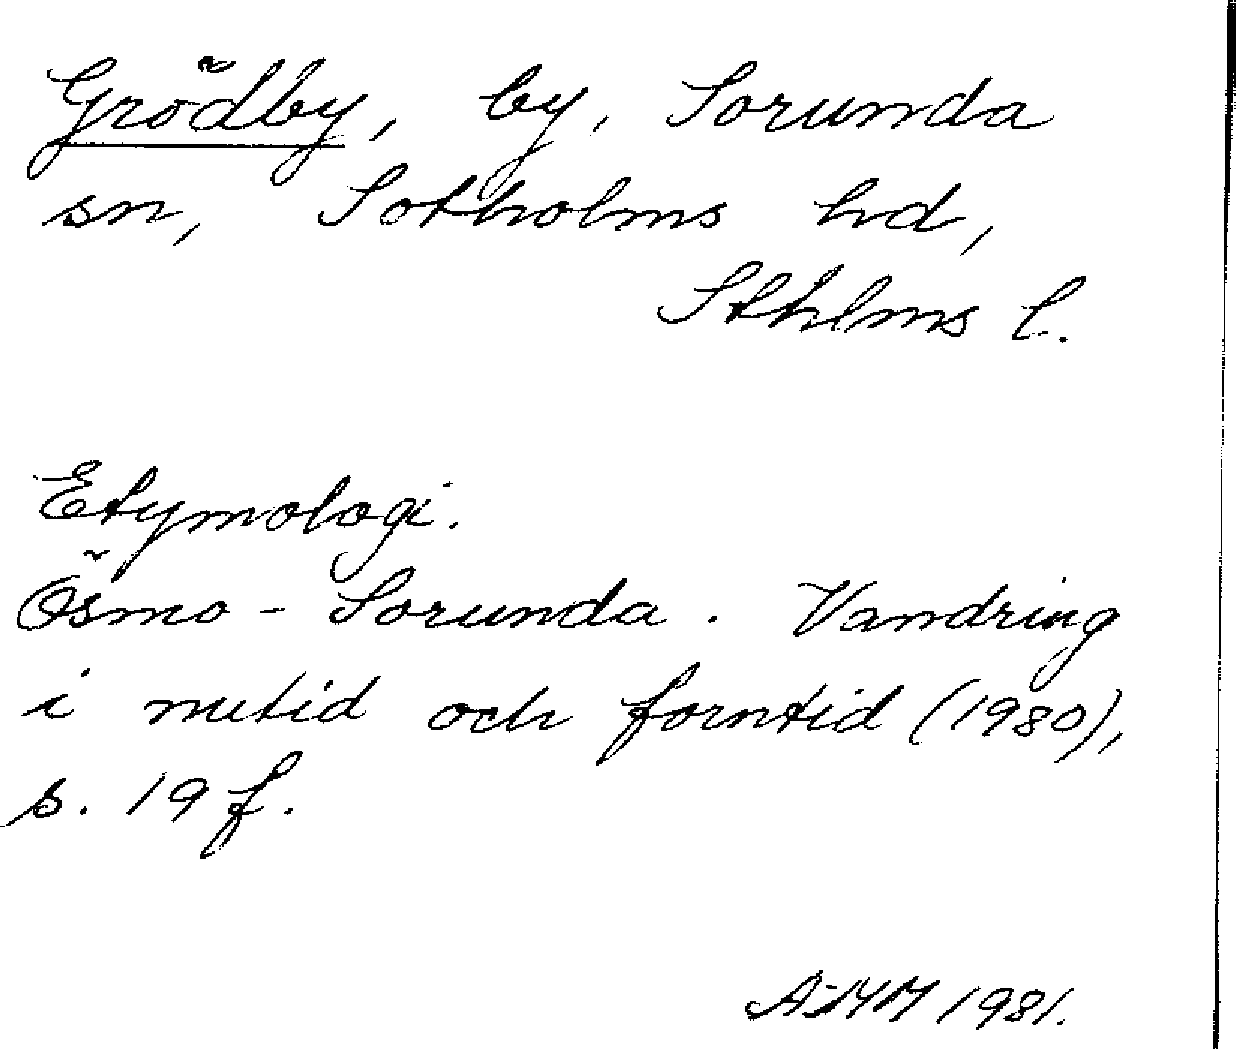 Grödby, by, Sorunda
sn, Sotholms hd,
Sthlms l.
Etymologi.
Ösmo - Sorunda. Vandring
i nutid och forntid (1980),
s. 19 f.
1981.